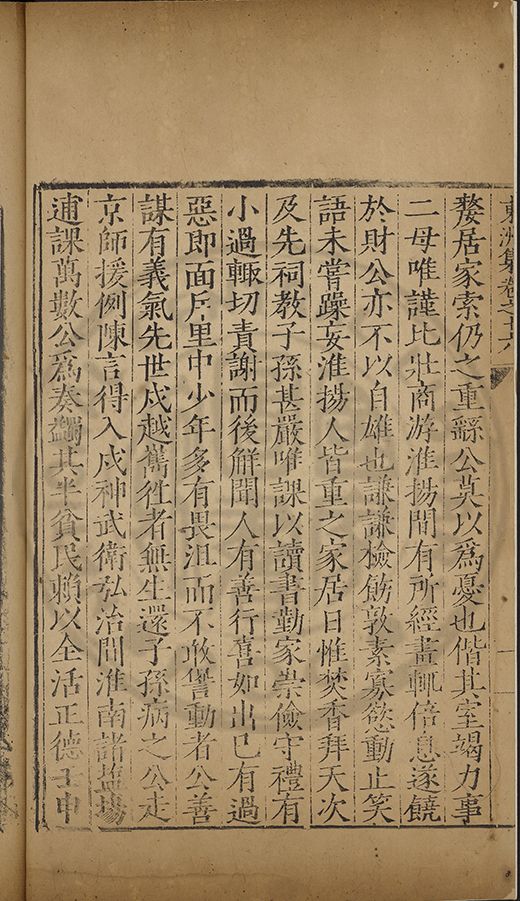 東洲集卷之十六
嫠居家索仍之重繇公莫以爲憂也偕其室竭力事
二母唯謹比壯商游淮揚間有所經畫輒倍息遂饒
於財公亦不以自雄也謙謙檢飭敦素寡慾動止笑
語未嘗躁妄淮揚人皆重之家居日惟焚香拜天次
及先祠教子孫甚嚴唯課以讀書勤家崇儉守禮有
小過輙切責謝而後解聞人有善行喜如出己有過
惡即面斥里中少年多有畏沮而不敢訾動者公善
謀有義氣先世戍越雋徃者無生還子孫病之公走
京師援例陳言得入戍神武衛弘治間淮南諸塩塲
逋課萬數公爲奏蠲其半貧民賴以全活正德壬申